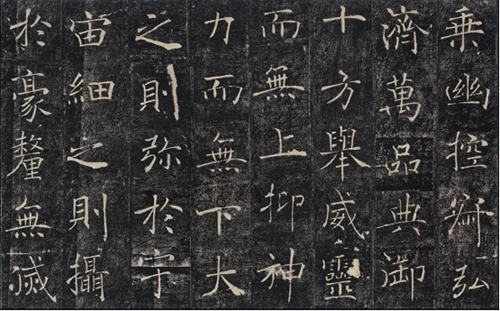 乘幽控寂弘
濟萬品典御
十方舉威靈
而無上抑神
力而無下大
之則弥於宇
宙細之則攝
於豪釐無滅